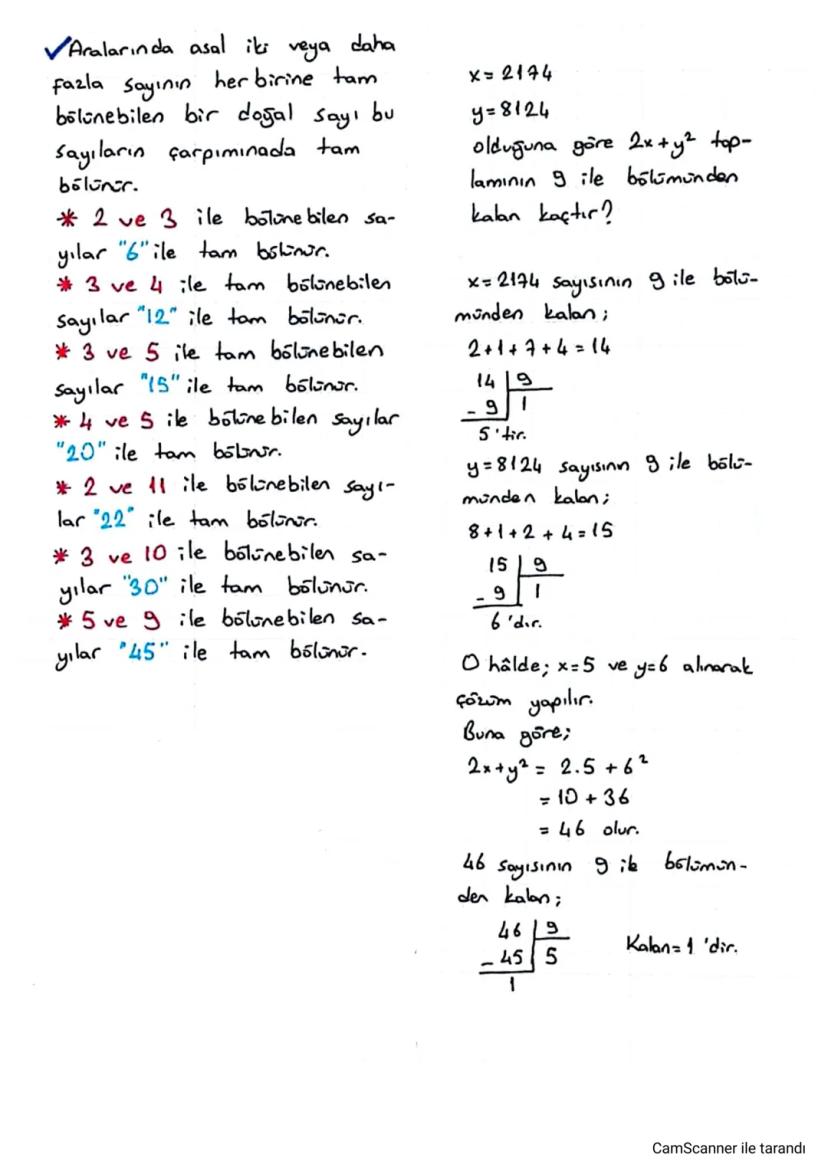 ✓Aralarında asal iki veya daha
fazla sayının her birine tam
bölünebilen bir doğal sayı bu
sayıların çarpımınada tam
bölünür.
* 2 ve 3 ile bölünebilen sa-
yılar "6" ile tam bölünür.
* 3 ve 4 ile tam bölünebilen
sayılar "12" ile tam bölünür.
* 3 ve 5 ile tam bölünebilen
sayılar "15" ile tam bölünür.
* 4 ve 5 ile bölünebilen sayılar
"20" ile tam bölünür.
* 2 ve 11 ile bölünebilen sayı-
lar "22" ile tam bölünür.
* 3 ve 10 ile bölünebilen sa-
yılar "30" ile tam bölünür.
* 5 ve 9 ile bölünebilen sa-
yılar "45" ile tam bölünür.
x=2174
y=8124
olduğuna göre 2x+y² top-
lamının 9 ile bölümünden
kalan kaçtır?
x=2174 sayısının 9 ile bölü-
münden kalan;
2+1+7+4=14
14 | 9
- 9 | 1
5'tir.
y=8124 sayısının 9 ile bölü-
münden kalan;
8+1+2+4=15
15 | 9
- 9 | 1
6'dır.
O hâlde; x=5 ve y=6 alınarak
çözüm yapılır.
Buna göre;
2x+y² = 2.5 + 6²
= 10 + 36
= 46 olur.
46 sayısının 9 ile bölümün-
den kalan;
46 | 9
- 45 | 5
1
Kalan=1 'dir.
CamScanner ile tarandı